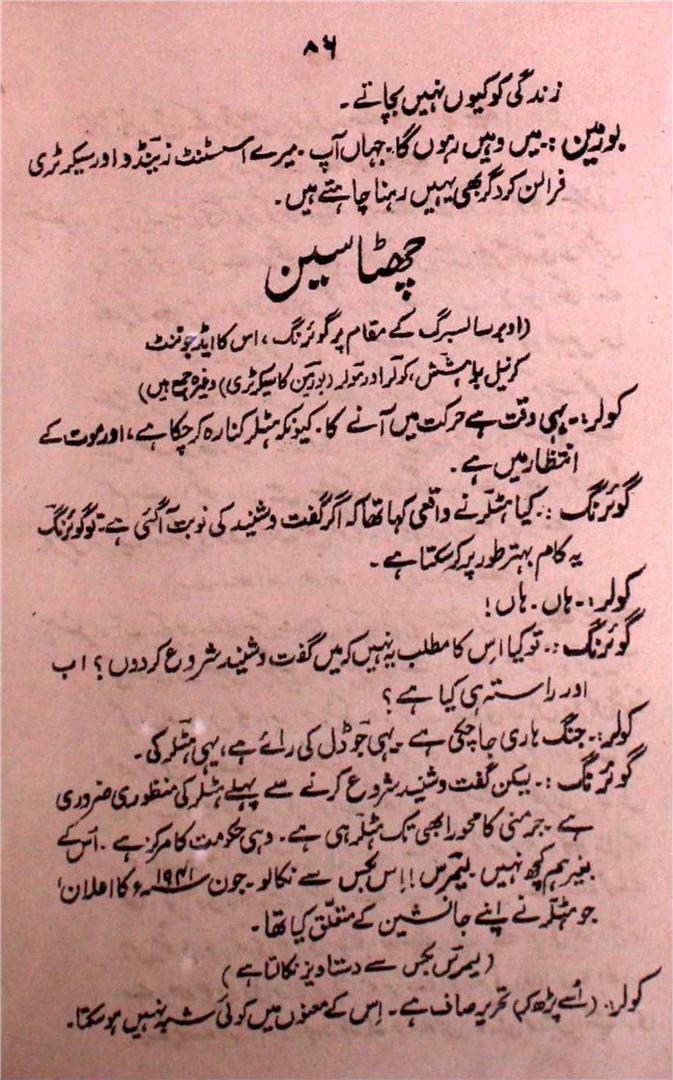 ۸۶
زندگی کو کیوں نہیں بچاتے۔
بورمین :۔ میں وہیں رہوں گا۔ جہاں آپ۔ میرے اسسٹنٹ زینڈو اور سیکرٹری
فرالن کروگر بھی یہیں رہنا چاہتے ہیں۔
چھٹا سین
(اوبرسالسبرگ کے مقام پر گوئرنگ، اس کا ایڈجوٹنٹ
کرنیل، کولر اور مولر (بورمین کا سیکرٹری) وغیرہ جمع ہیں)
کولر:۔ یہی وقت ہے حرکت میں آنے کا۔ کیونکہ ہٹلر کنارہ کر چکا ہے، اور موت کے
انتظار میں ہے۔
گوئرنگ :۔ کیا ہٹلر نے واقعی کہا تھا کہ اگر گفت و شنید کی نوبت آگئی ہے۔ تو گوئرنگ
یہ کام بہتر طور پر کر سکتا ہے۔
کولر:۔ ہاں۔ ہاں!
گوئرنگ :۔ تو کیا اِس کا مطلب یہ نہیں کہ میں گفت و شنید شروع کردوں؟ اب
اور راستہ ہی کیا ہے؟
کولر:۔ جنگ ہاری جا چکی ہے۔ یہی جوڈل کی رائے ہے، یہی ہٹلر کی۔
گوئرنگ :۔ لیکن گفت و شنید شروع کرنے سے پہلے ہٹلر کی منظوری ضروری
ہے۔ جرمنی کا محور ابھی تک ہٹلر ہی ہے۔ وہی حکومت کا مرکز ہے۔ اُس کے
بغیر ہم کچھ نہیں۔ لیمرس!! اِس بکس سے نکالو۔ جون ۱۹۴۱ء کا اعلان‘
جو ہٹلر نے اپنے جانشین کے متعلق کیا تھا۔
(لیمرس بکس سے دستاویز نکالتا ہے)
کولر:۔ (اُسے پڑھ کر) تحریر صاف ہے۔ اِس کے معنوں میں کوئی شبہ نہیں ہو سکتا۔